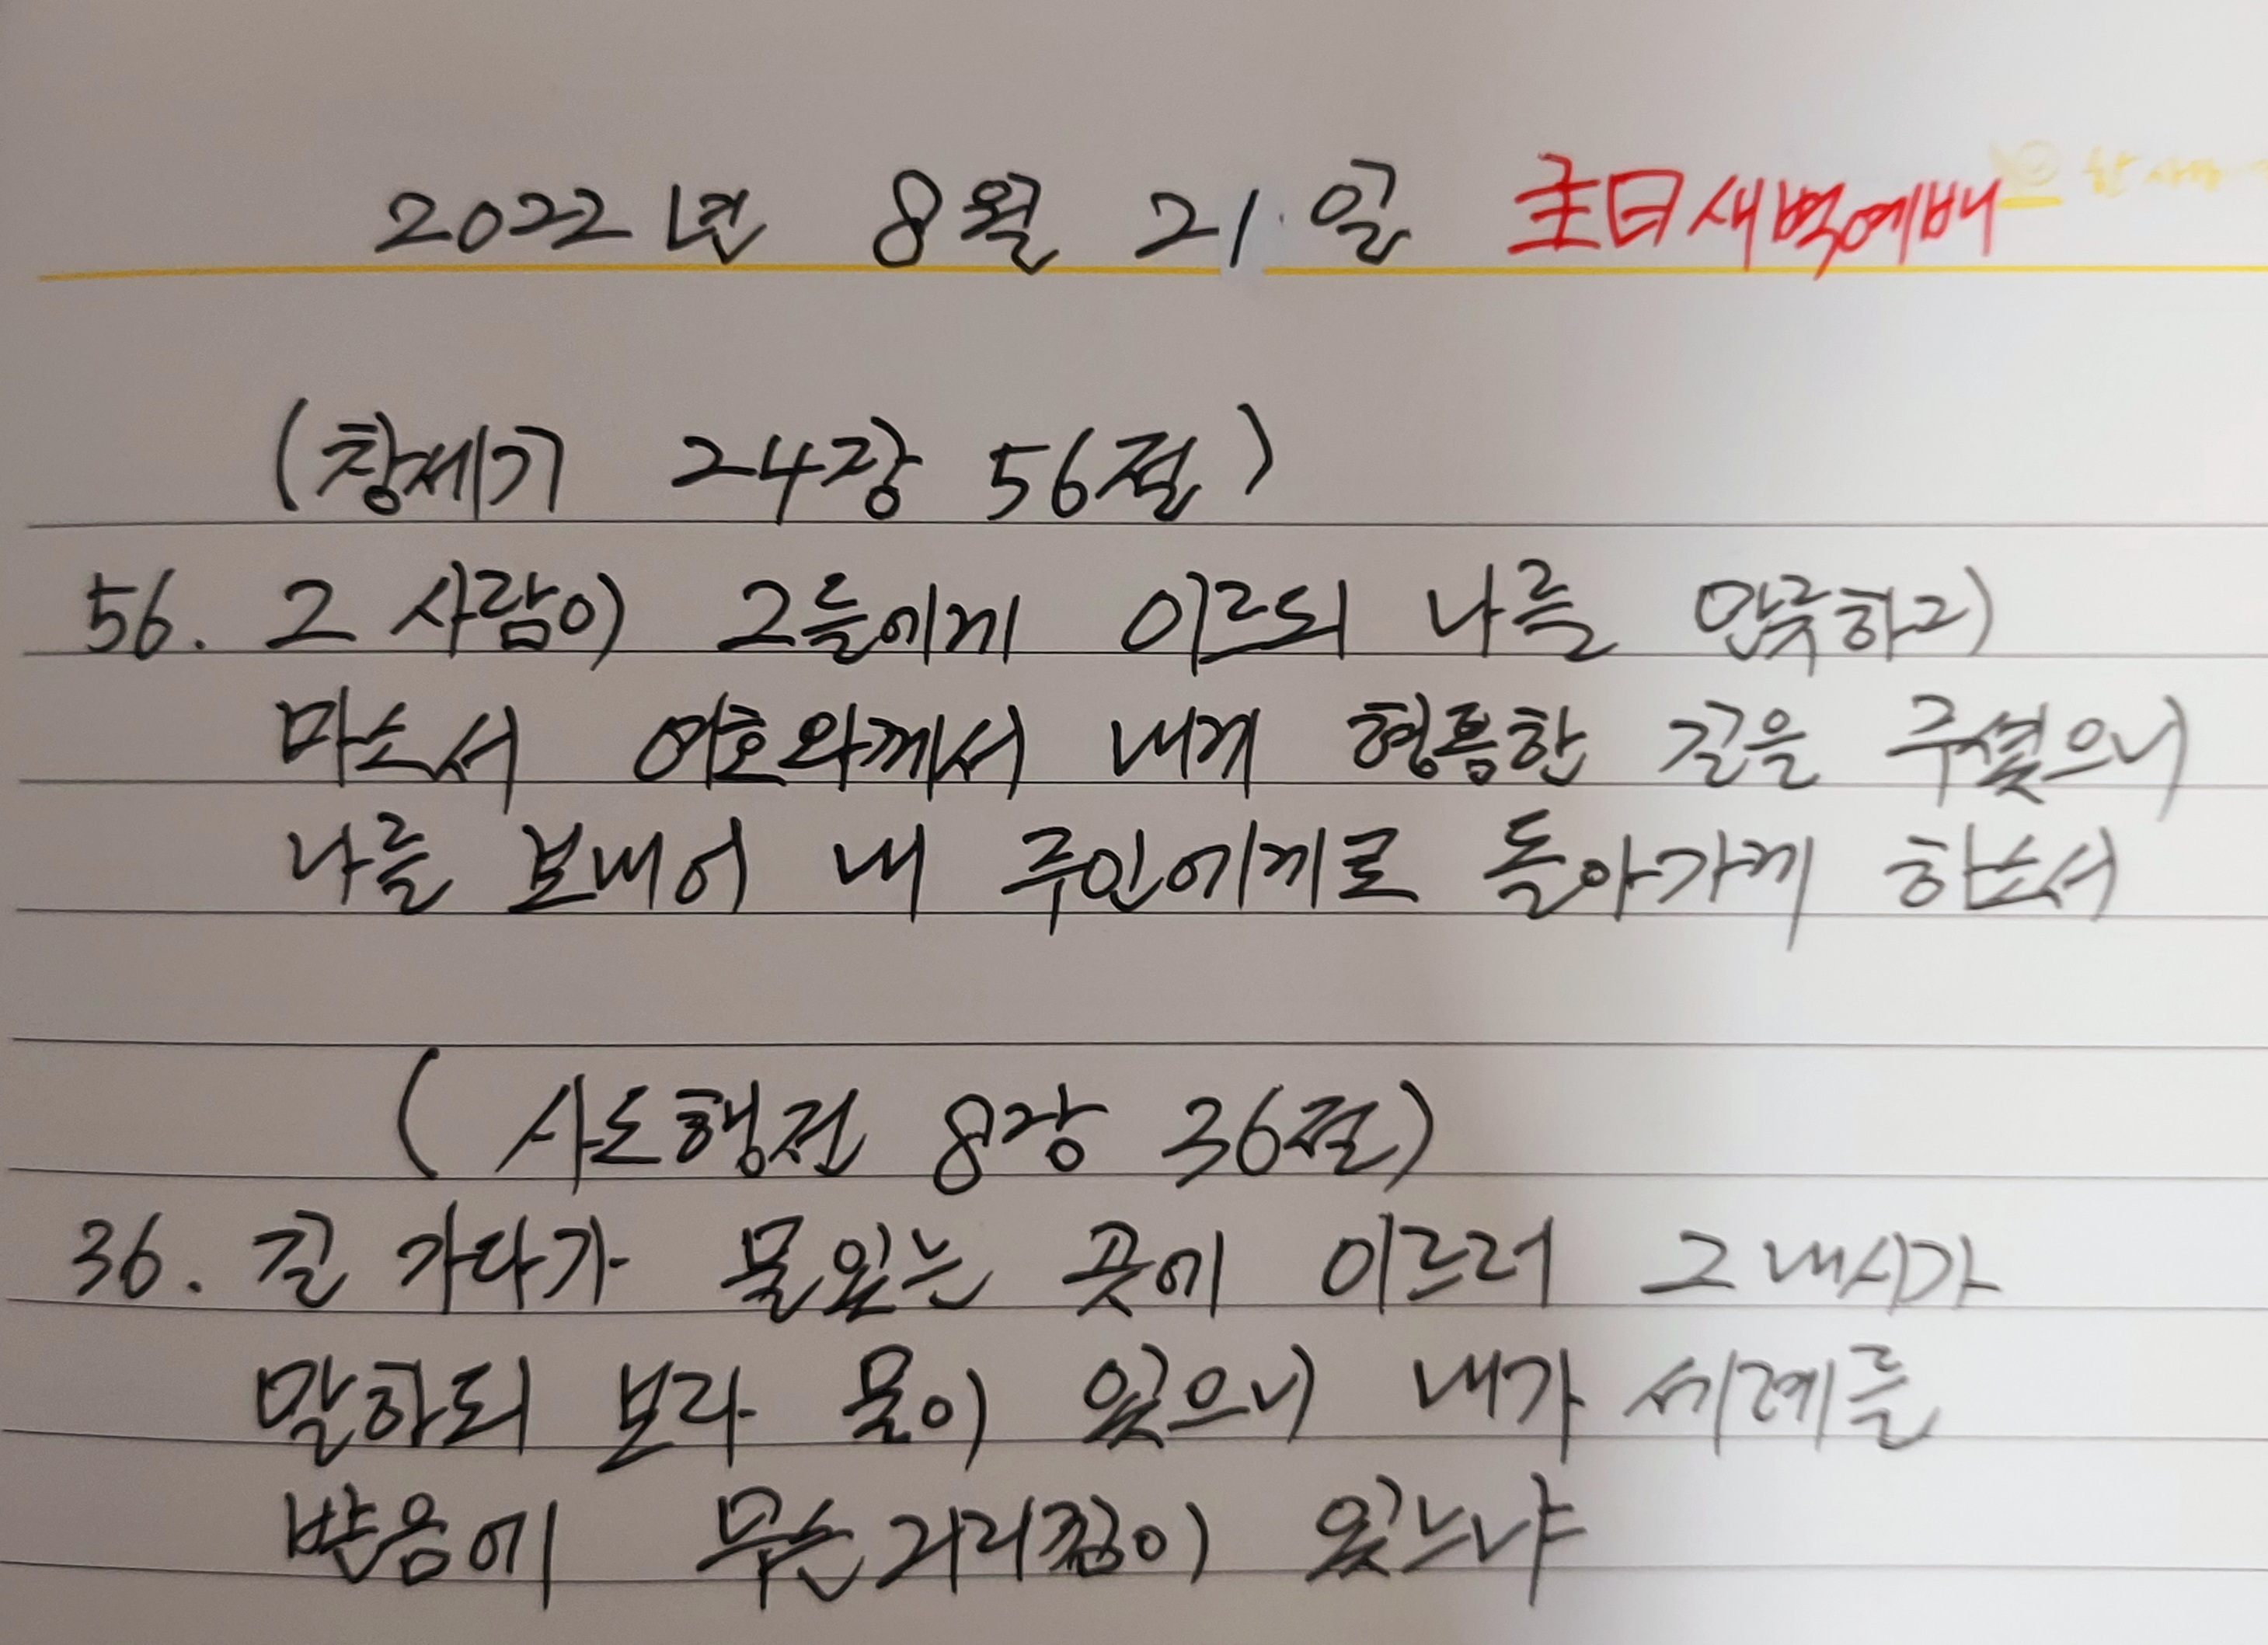 2022년 8월 21일 主日새벽예배
(창세기 24장 56절)
56. 그 사람이 그들에게 이르되 나를 만류하고
마소서 여호와께서 내게 형통한 길을 주셨으니
나를 보내어 내 주인에게로 돌아가게 하소서
(사도행전 8장 36절)
36. 길 가다가 물있는 곳에 이르러 그 내시가
말하되 보라 물이 있으니 내가 세례를
받음에 무슨거리낌이 있느냐